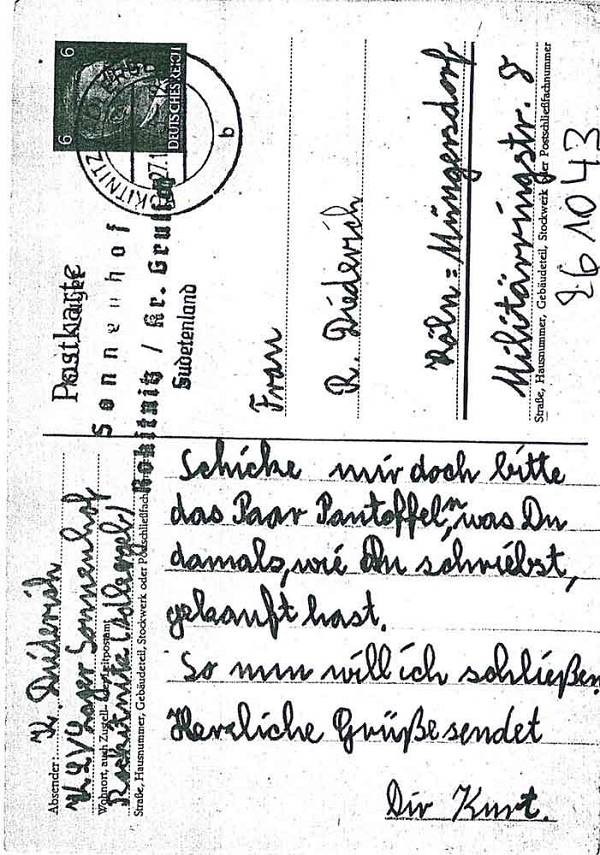 Postkarte
Sonnenhof
Rokitnitz / Kr. Grulich
Sudetenland
DEUTSCHES REICH
6
6
b
Frau
R. Diederich
Köln=Müngersdorf
Militärringstr. 8
Straße, Hausnummer, Gebäudeteil, Stockwerk oder Postschließfachnummer
26 10 43
Absender: K. Diederich
KLV Lager Sonnenhof
Wohnort, auch Zustell- oder Leitpostamt
Rockitnitz (Adlergeb)
Straße, Hausnummer, Gebäudeteil, Stockwerk oder Postschließfach
Schicke mir doch bitte
das Paar Pantoffeln, was Du
damals, wie Du schriebst,
gekauft hast.
So nun will ich schließen
Herzliche Grüße sendet
Dir Kurt.